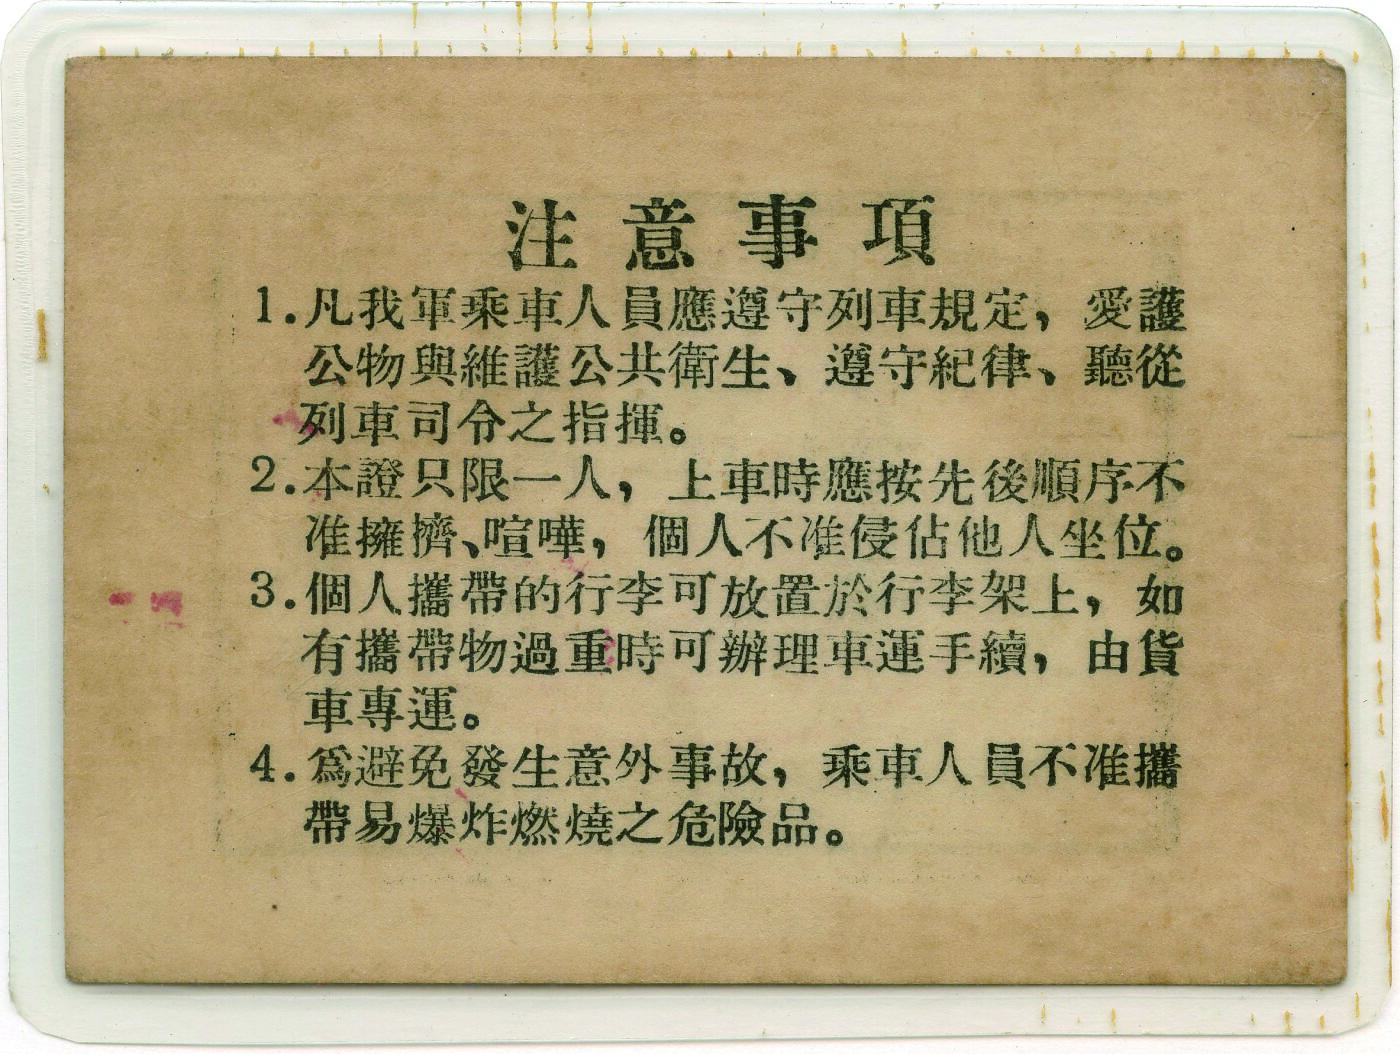 注意事項
1.凡我軍乘車人員應遵守列車規定，愛護
公物與維護公共衛生、遵守紀律、聽從
列車司令之指揮。
2.本證只限一人，上車時應按先後順序不
准擁擠、喧嘩，個人不准侵佔他人坐位。
3.個人攜帶的行李可放置於行李架上，如
有攜帶物過重時可辦理車運手續，由貨
車專運。
4.爲避免發生意外事故，乘車人員不准攜
帶易爆炸燃燒之危險品。